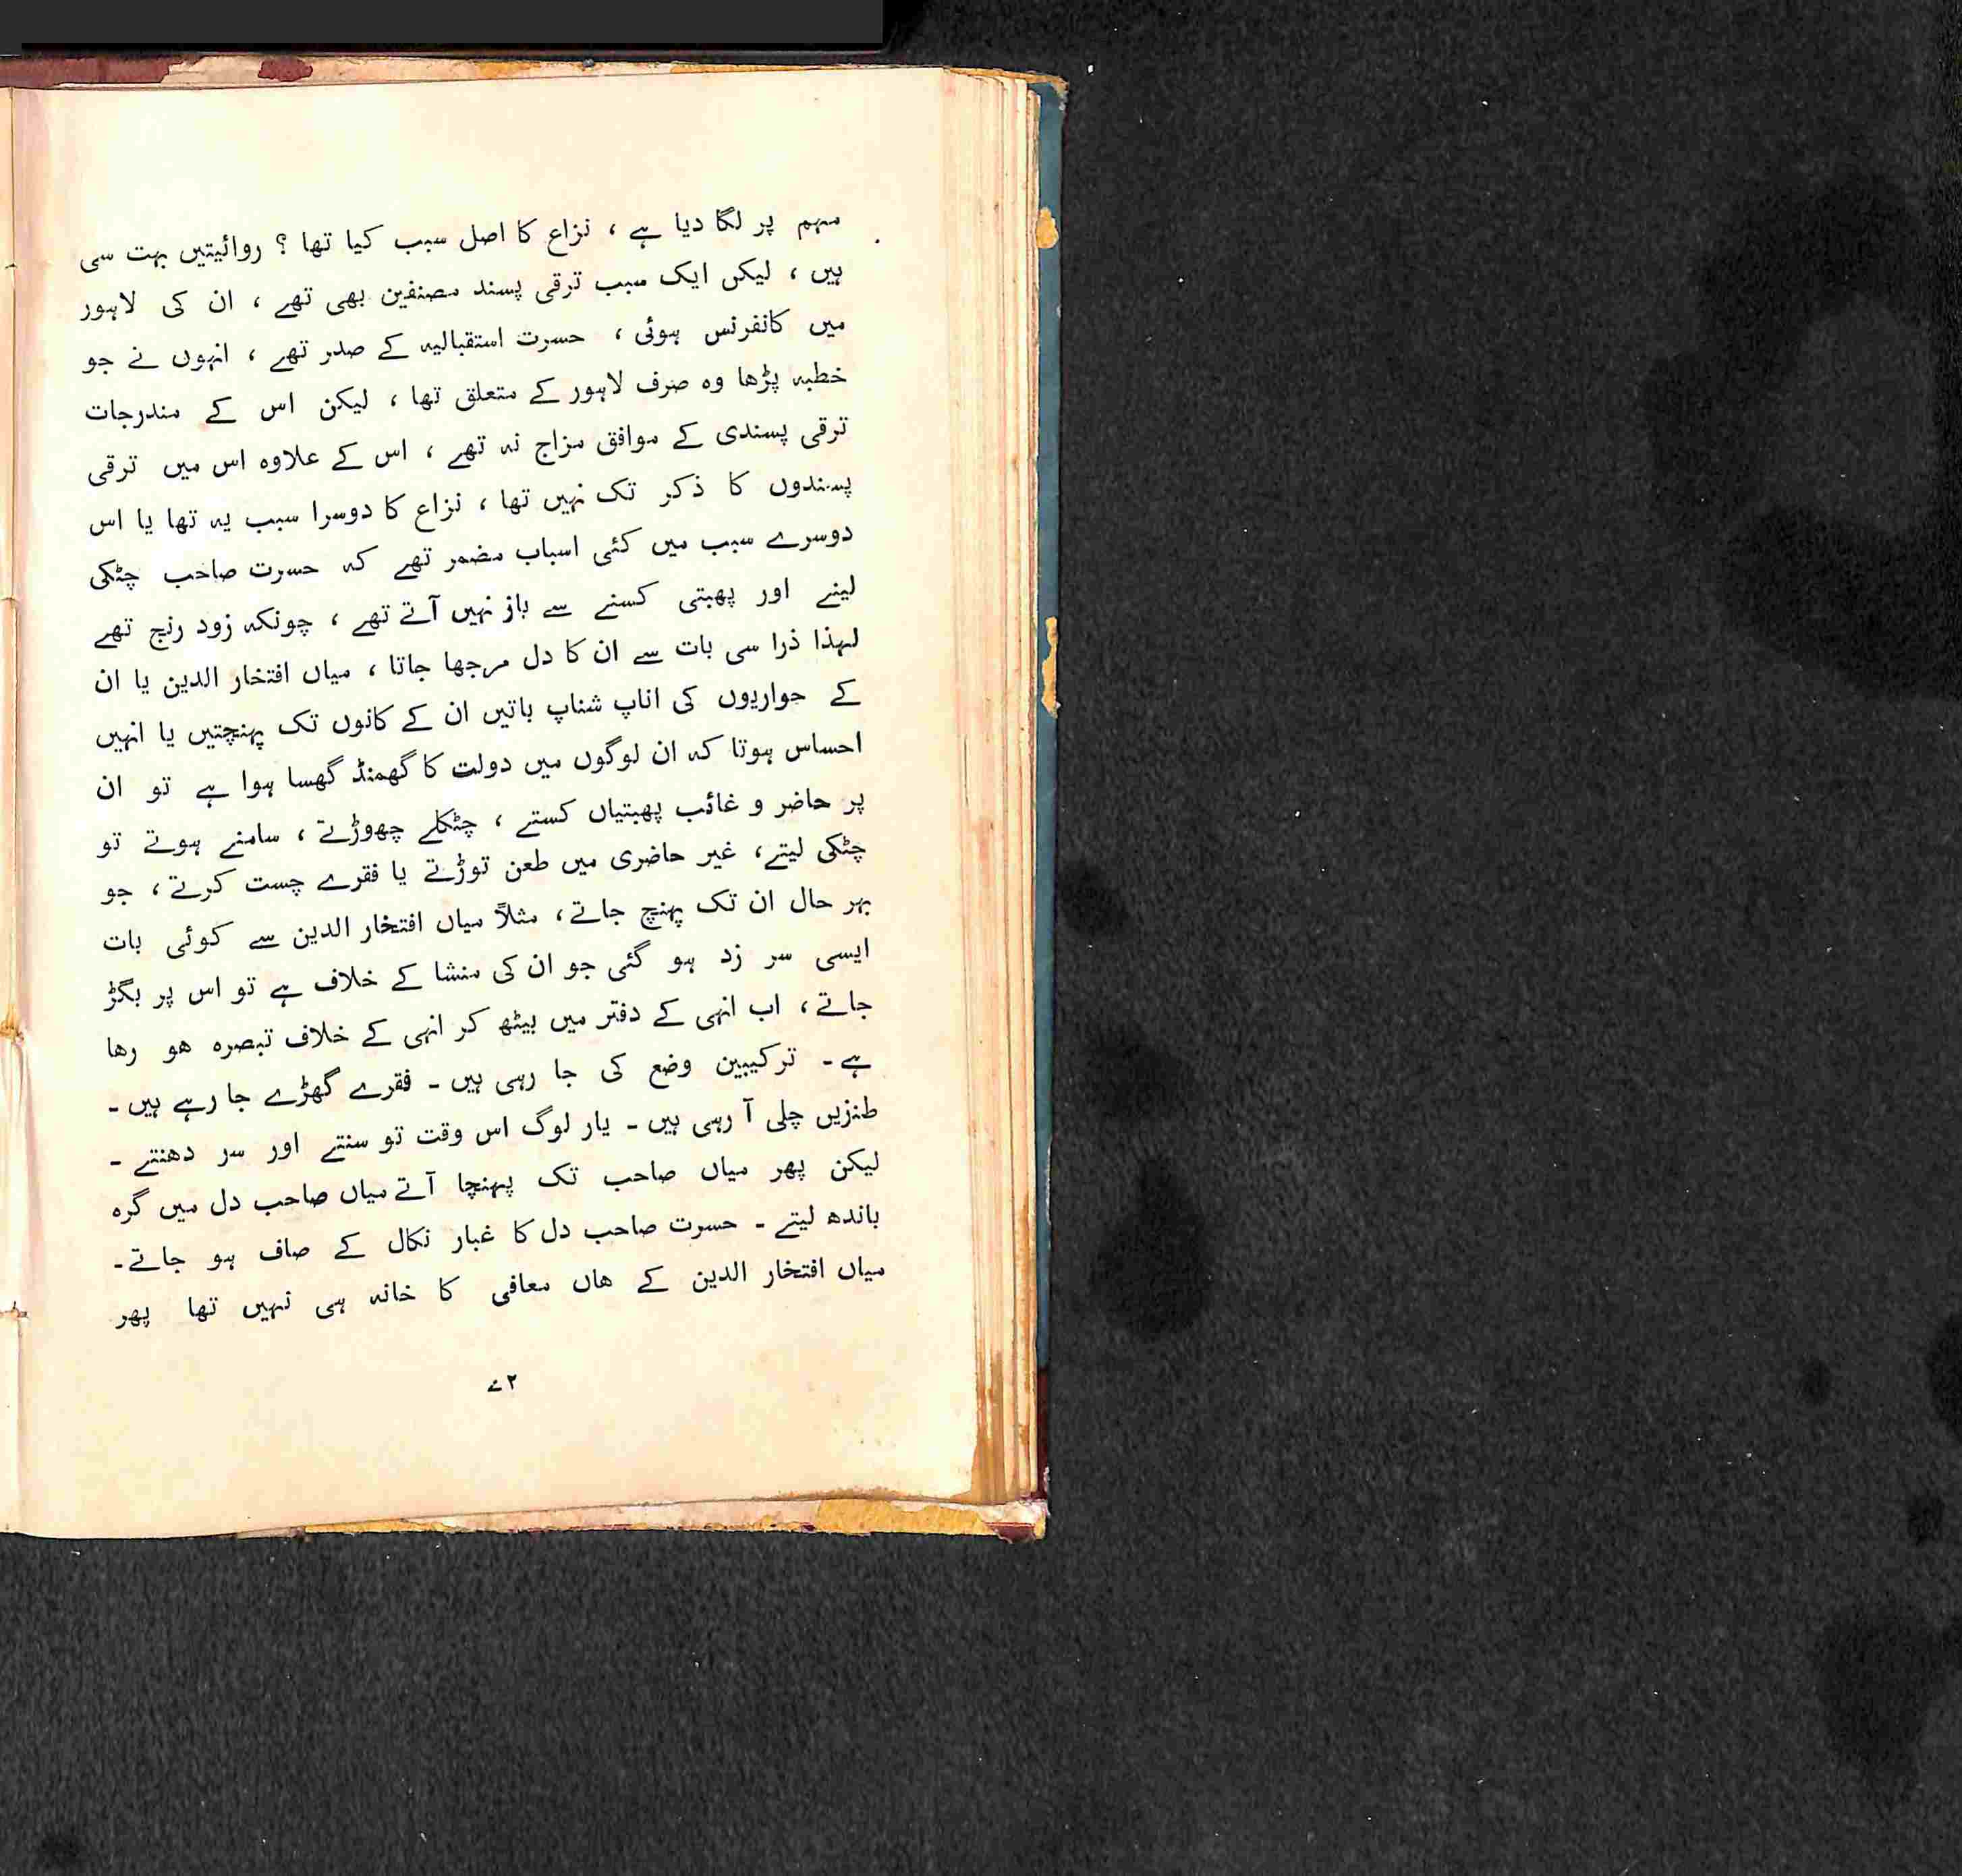 مہم پر لگا دیا ہے ، نزاع کا اصل سبب کیا تھا ؟ روائیتیں بہت سی
ہیں ، لیکن ایک سبب ترقی پسند مصنفین بھی تھے ، ان کی لاہور
میں کانفرنس ہوئی ، حسرت استقبالیہ کے صدر تھے ، انہوں نے جو
خطبہ پڑھا وہ صرف لاہور کے متعلق تھا ، لیکن اس کے مندرجات
ترقی پسندی کے موافق مزاج نہ تھے ، اس کے علاوہ اس میں ترقی
پسندوں کا ذکر تک نہیں تھا ، نزاع کا دوسرا سبب یہ تھا یا اس
دوسرے سبب میں کئی اسباب مضمر تھے کہ حسرت صاحب چٹکی
لینے اور پھبتی کسنے سے باز نہیں آتے تھے ، چونکہ زود رنج تھے
لہذا ذرا سی بات سے ان کا دل مرجھا جاتا ، میاں افتخار الدین یا ان
کے حواریوں کی اناپ شناپ باتیں ان کے کانوں تک پہنچتیں یا انہیں
احساس ہوتا کہ ان لوگوں میں دولت کا گھمنڈ گھسا ہوا ہے تو ان
پر حاضر و غائب پھبتیاں کستے ، چٹکلے چھوڑتے ، سامنے ہوتے تو
چٹکی لیتے، غیر حاضری میں طعن توڑتے یا فقرے چست کرتے ، جو
بہر حال ان تک پہنچ جاتے، مثلاً میاں افتخار الدین سے کوئی بات
ایسی سر زد ہو گئی جو ان کی منشا کے خلاف ہے تو اس پر بگڑ
جاتے ، اب انہی کے دفتر میں بیٹھ کر انہی کے خلاف تبصرہ ھو رھا
ہے ۔ ترکیبین وضع کی جا رہی ہیں ۔ فقرے گھڑے جا رہے ہیں ۔
طنزیں چلی آ رہی ہیں ۔ یار لوگ اس وقت تو سنتے اور سر دھنتے ۔
لیکن پھر میاں صاحب تک پہنچا آتے میاں صاحب دل میں گرہ
باندھ لیتے ۔ حسرت صاحب دل کا غبار نکال کے صاف ہو جاتے۔
میاں افتخار الدین کے ھاں معافی کا خانہ ہی نہیں تھا پھر
۷۲